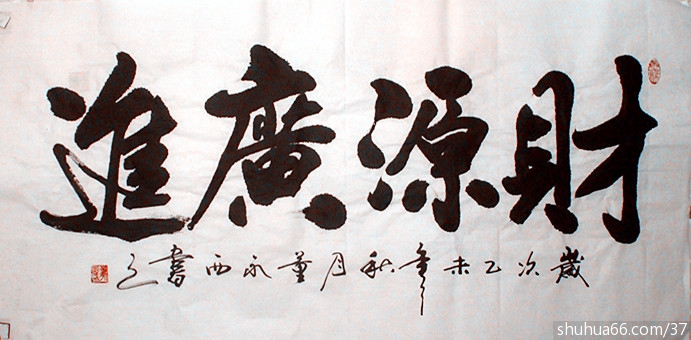 財源廣進
歲次乙未年秋月董永西書之
shuhua66.com/37